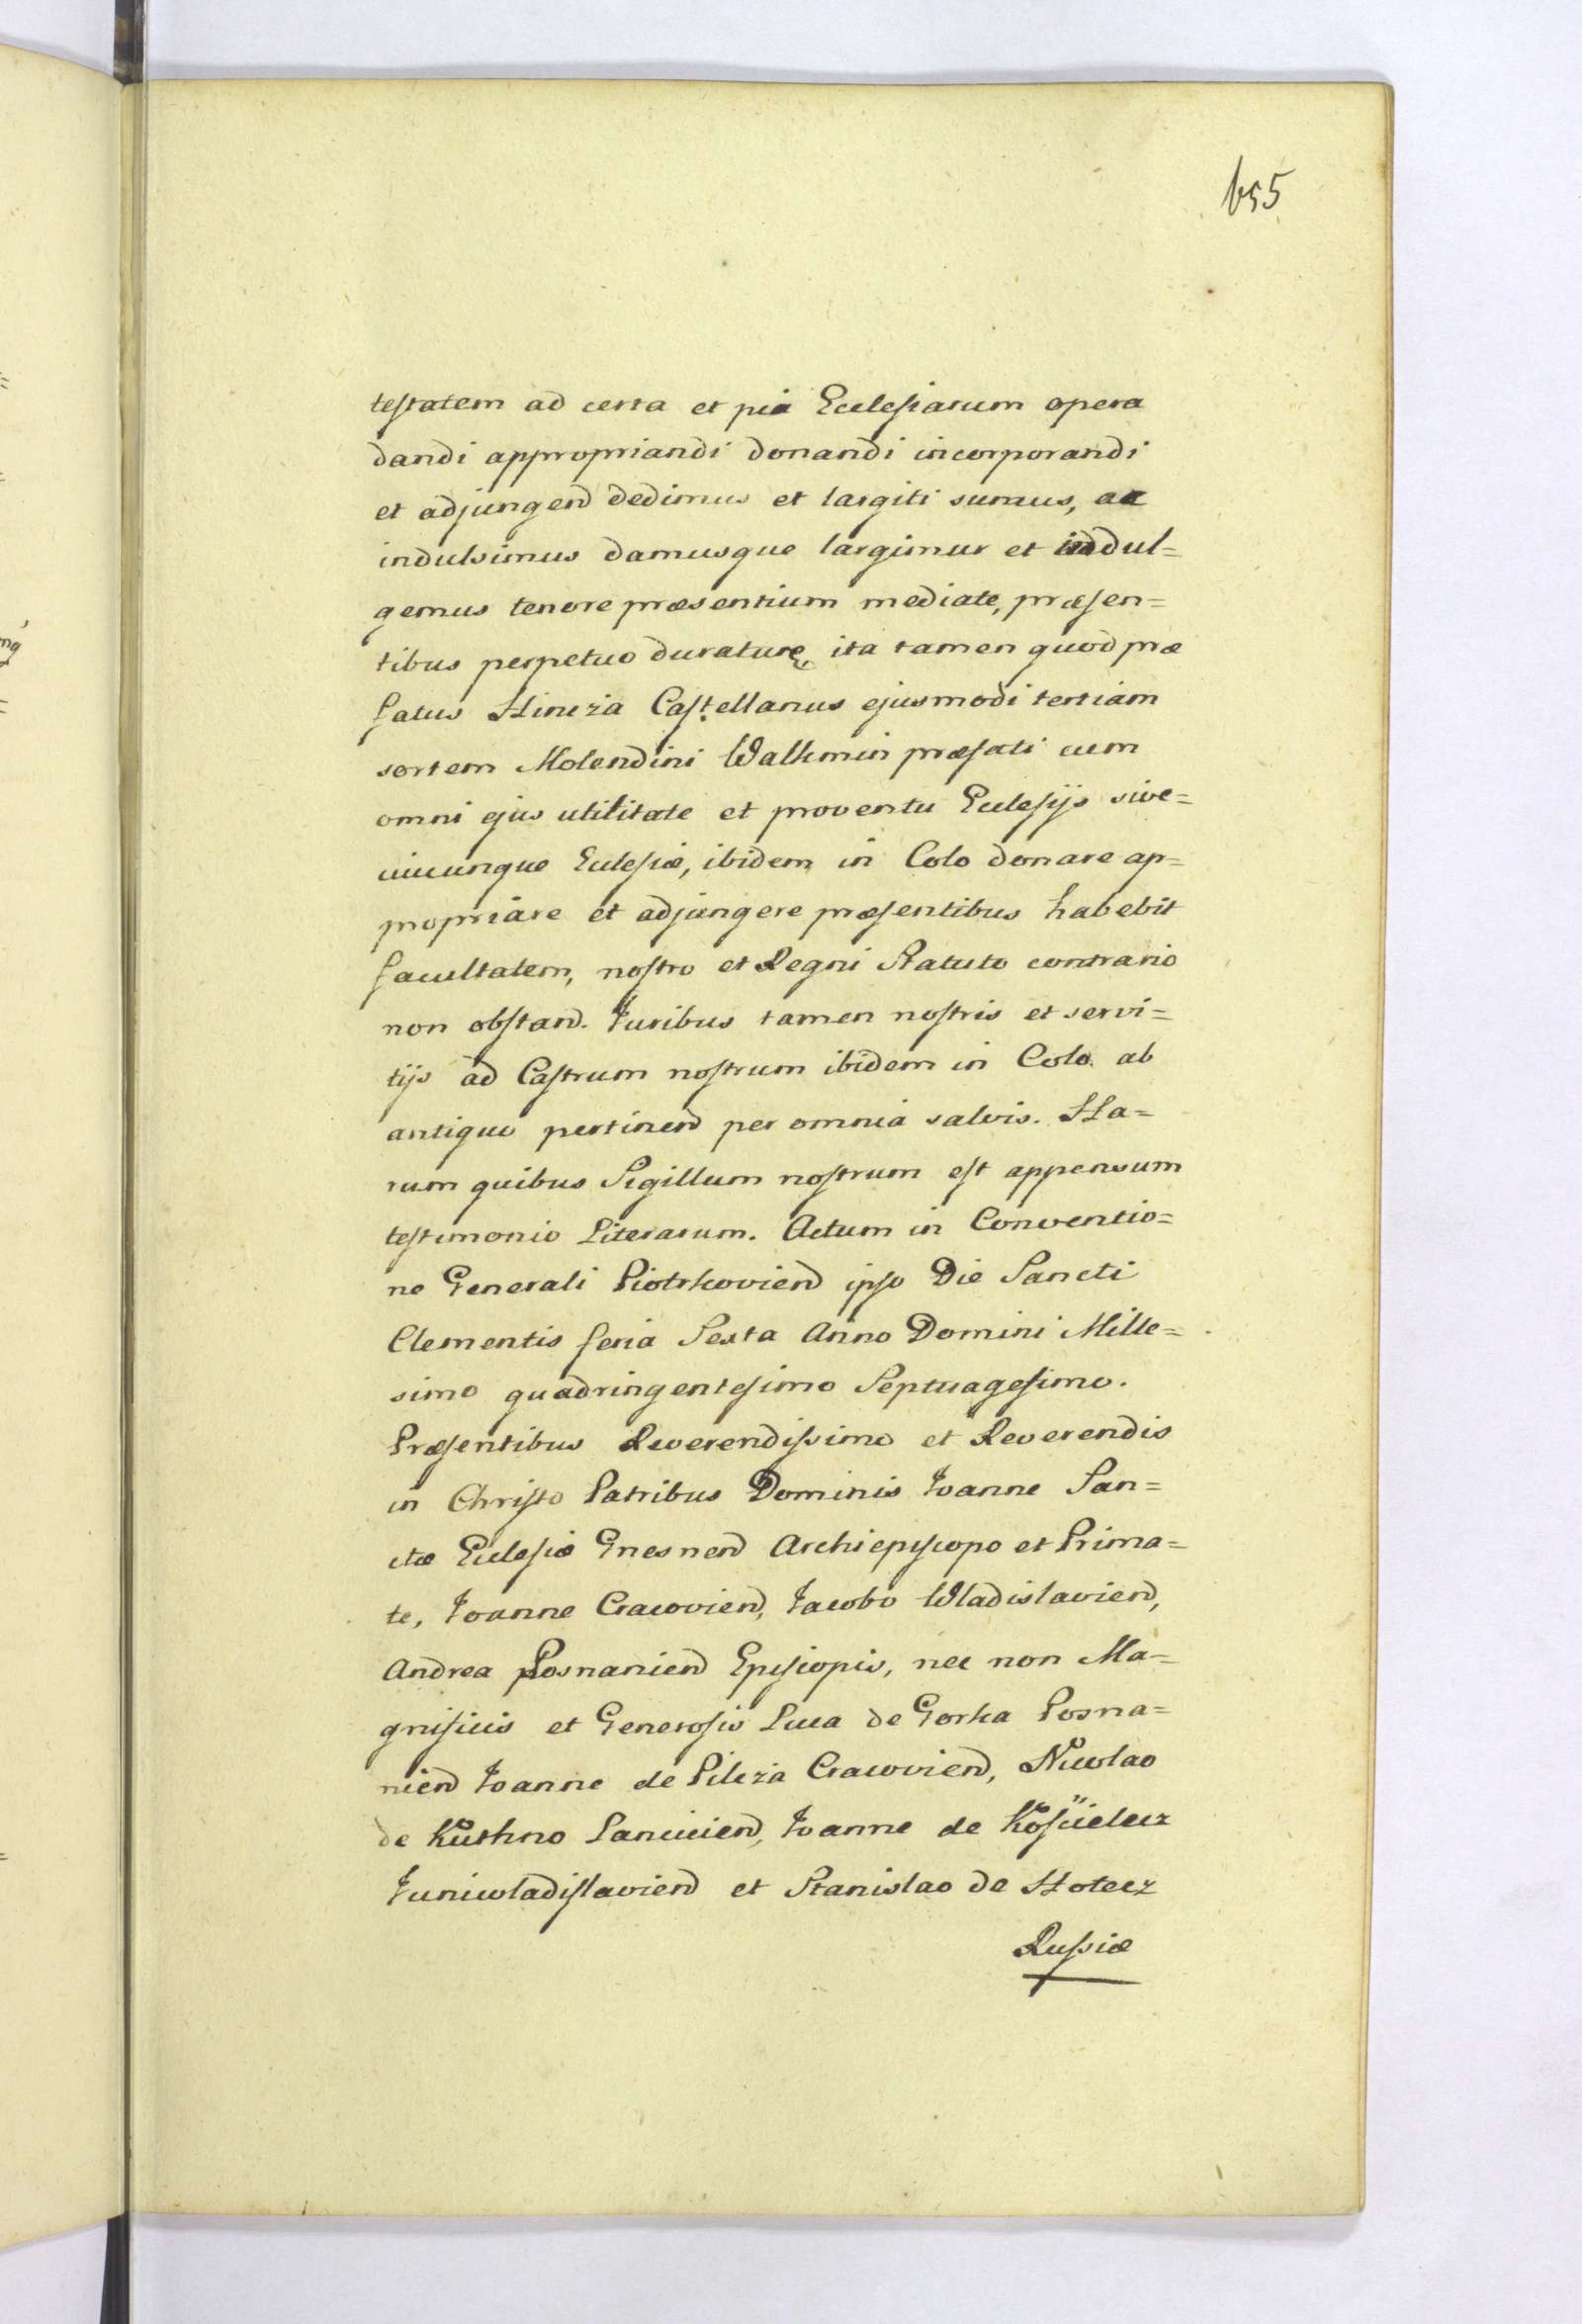 655
testatem ad certa et pia Ecclesiarum opera
dandi appropriandi donandi incorporandi
et adjungend dedimus et largiti sumus, ac
indulsimus damusque largimur et indul=
gemus tenore præsentium mediate, præsen=
tibus perpetuo durature, ita tamen quod præ
fatus Hincza Castellanus ejusmodi tertiam
sortem Molendini Walkmin præfati cum
omni ejus utilitate et proventu Eclesijs sive=
cuicunque Eclesiæ, ibidem in Colo donare ap=
propriare et adjungere præsentibus habebit
facultatem, nostro et Regni Statuto contrario
non obstand. Juribus tamen nostris et servi=
tijs ad Castrum nostrum ibidem in Colo ab
antiquo pertinend per omnia salvis. Ha=
rum quibus Sigillum nostrum est appensum
testimonio Literarum. Actum in Conventio=
ne Generali Piotrkoviend ipso Die Sancti
Clementis feria Sexta Anno Domini Mille=
simo quadringentesimo Septuagesimo.
Præsentibus Reverendissimo et Reverendis
in Christo Patribus Dominis Joanne San=
ctæ Eclesiæ Gnesnend Archiepiscopo et Prima=
te, Joanne Cracoviend, Jacobo Wladislaviend,
Andrea Posnaniend Episcopis, nec non Ma=
gnificis et Generosis Luca de Gorka Posna=
niend Joanne de Pilcza Cracoviend, Nicolao
de Kuthno Lanciciend, Joanne de Kościelecz
Juniwladislaviend et Stanislao de Hotecz
Russiæ